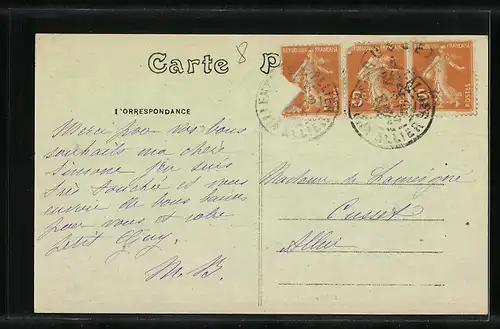 Carte P
8
RÉPUBLIQUE FRANÇAISE
RÉPUBLIQUE FRANÇAISE
RÉPUBLIQUE FRANÇAISE
POSTES
ALLIER
ALLIER
CORRESPONDANCE
Merci pour vos bons
souhaits ma chère
Simone j'en suis
très touchée et vous
envoie de bons baisers
pour vous et votre
petit Guy.
M. B.
Madame de
Cusset
Allier